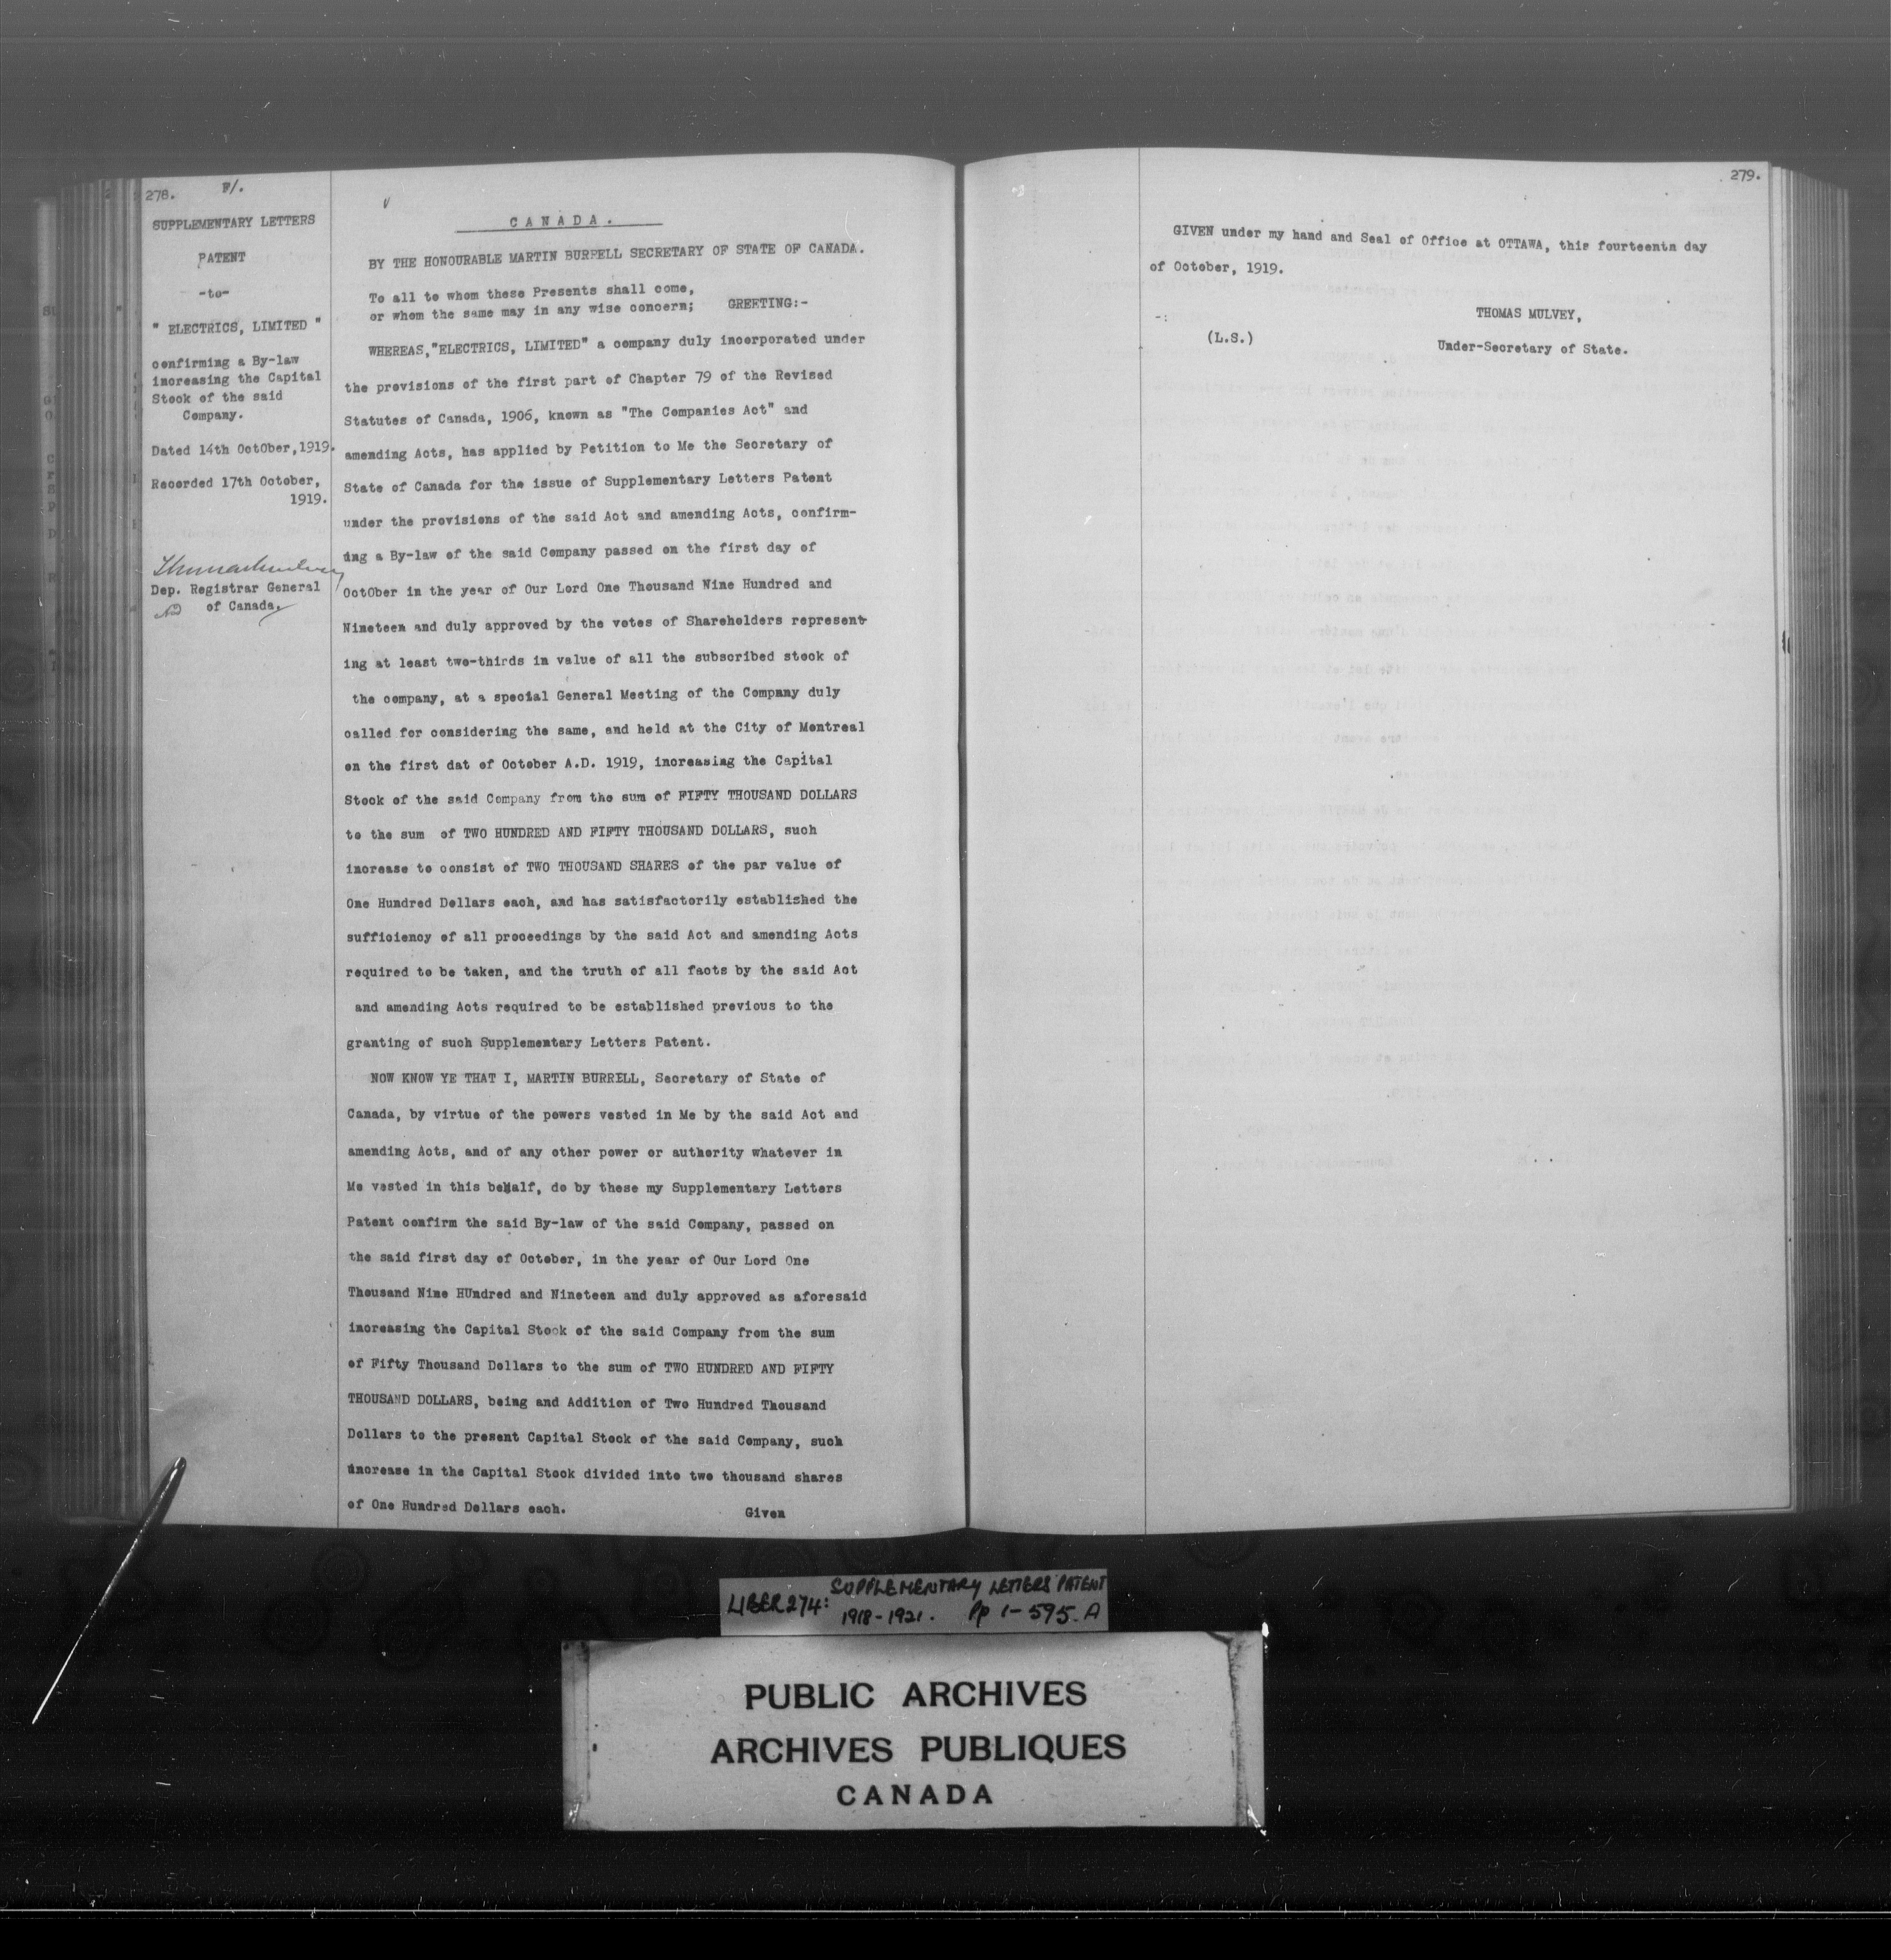 278.
F/.
SUPPLEMENTARY LETTERS
PATENT
-to-
" ELECTRICS, LIMITED "
confirming a By-law
increasing the Capital
Stock of the said
Company.
Dated 14th OctOber,1919.
Recorded 17th October,
1919.
Thomas Mulvey
Dep. Registrar General
of Canada.
CANADA.
BY THE HONOURABLE MARTIN BURRELL SECRETARY OF STATE OF CANADA.
To all to whom these Presents shall come,
or whom the same may in any wise concern; GREETING:-
WHEREAS,"ELECTRICS, LIMITED" a company duly incorporated under
the provisions of the first part of Chapter 79 of the Revised
Statutes of Canada, 1906, known as "The Companies Act" and
amending Acts, has applied by Petition to Me the Secretary of
State of Canada for the issue of Supplementary Letters Patent
under the provisions of the said Act and amending Acts, confirm-
ing a By-law of the said Company passed on the first day of
OctOber in the year of Our Lord One Thousand Nine Hundred and
Nineteen and duly approved by the votes of Shareholders represent-
ing at least two-thirds in value of all the subscribed stock of
the company, at a special General Meeting of the Company duly
called for considering the same, and held at the City of Montreal
on the first dat of October A.D. 1919, increasing the Capital
Stock of the said Company from the sum of FIFTY THOUSAND DOLLARS
to the sum of TWO HUNDRED AND FIFTY THOUSAND DOLLARS, such
increase to consist of TWO THOUSAND SHARES of the par value of
One Hundred Dollars each, and has satisfactorily established the
sufficiency of all proceedings by the said Act and amending Acts
required to be taken, and the truth of all facts by the said Act
and amending Acts required to be established previous to the
granting of such Supplementary Letters Patent.
NOW KNOW YE THAT I, MARTIN BURRELL, Secretary of State of
Canada, by virtue of the powers vested in Me by the said Act and
amending Acts, and of any other power or authority whatever in
Me vested in this behalf, do by these my Supplementary Letters
Patent confirm the said By-law of the said Company, passed on
the said first day of October, in the year of Our Lord One
Thousand Nine HUndred and Nineteen and duly approved as aforesaid
increasing the Capital Stock of the said Company from the sum
of Fifty Thousand Dollars to the sum of TWO HUNDRED AND FIFTY
THOUSAND DOLLARS, being and Addition of Two Hundred Thousand
Dollars to the present Capital Stock of the said Company, such
increase in the Capital Stock divided into two thousand shares
of One Hundred Dollars each. Given
279.
GIVEN under my hand and Seal of Office at OTTAWA, this fourteenth day
of October, 1919.
THOMAS MULVEY,
(L.S.)
Under-Secretary of State.
LIBER 274: SUPPLEMENTARY LETTERS PATENT
1918-1921. Pp 1-595. A
PUBLIC ARCHIVES
ARCHIVES PUBLIQUES
CANADA